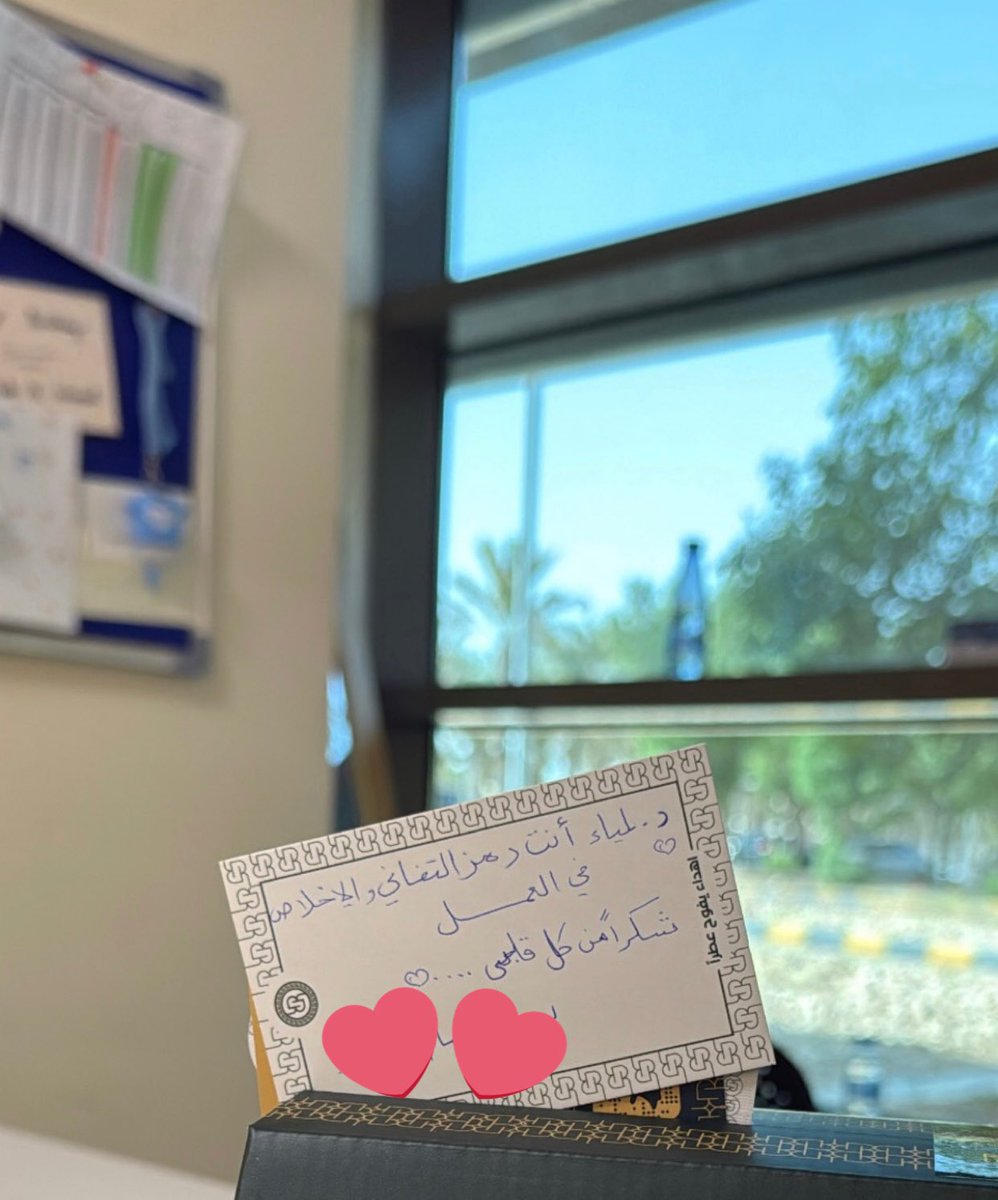 د. لمياء أنت رمز التفاني والاخلاص
في العمل
شكراً من كل قلبي ....
اهداء يفوح عطراً